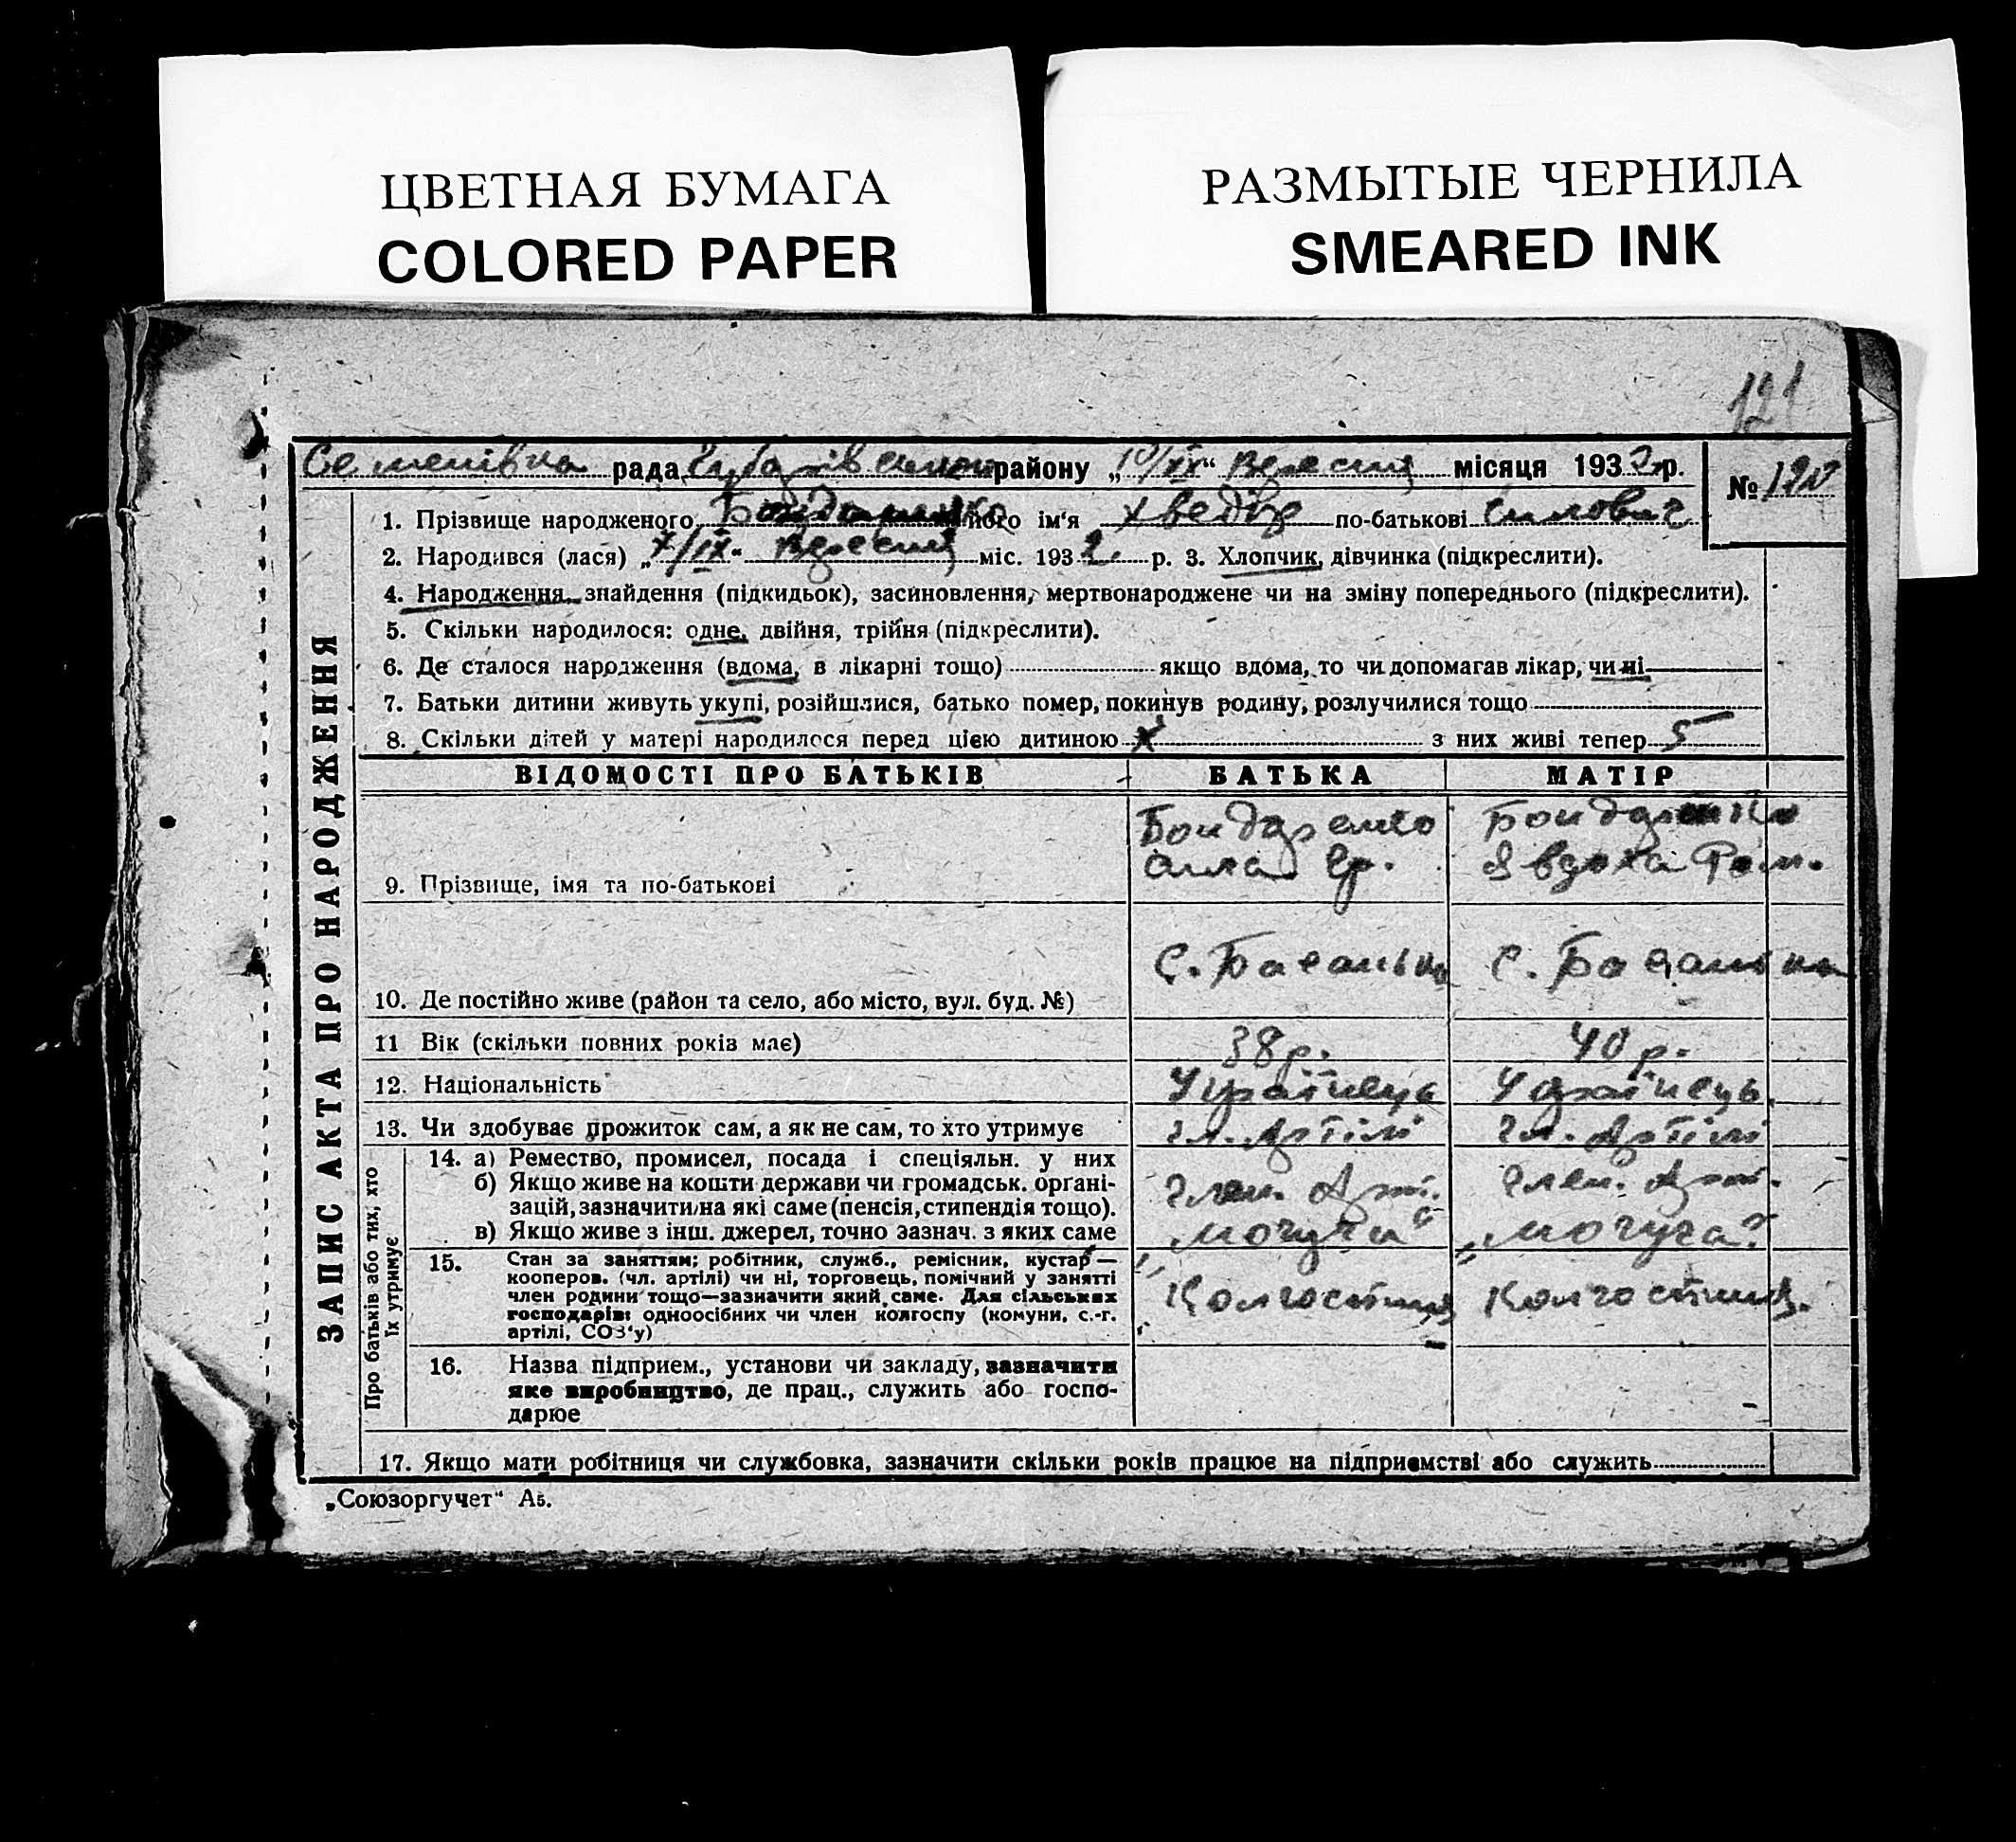 ЦВЕТНАЯ БУМАГА
COLORED PAPER
РАЗМЫТЫЕ ЧЕРНИЛА
SMEARED INK
121
Семенівка рада району „10/IX“ Вересня місяця 1932 р. №120
ЗАПИС АКТА ПРО НАРОДЖЕННЯ
1. Прізвище народженого Бондаренко його ім'я Хведір по-батькові Силович
2. Народився (лася) „ /IX“ Вересня міс. 1932 р. 3. Хлопчик, дівчинка (підкреслити).
4. Народження, знайдення (підкидьок), засиновлення, мертвонароджене чи на зміну попереднього (підкреслити).
5. Скільки народилося: одне, двійня, трійня (підкреслити).
6. Де сталося народження (вдома, в лікарні тощо) якщо вдома, то чи допомагав лікар, чи ні
7. Батьки дитини живуть укупі, розійшлися, батько помер, покинув родину, розлучилися тощо
8. Скільки дітей у матері народилося перед цією дитиною з них живі тепер 5
ВІДОМОСТІ ПРО БАТЬКІВ БАТЬКА МАТІР
Бондаренко Бондаренко
9. Прізвище, імя та по-батькові
10. Де постійно живе (район та село, або місто, вул. буд. №)
11 Вік (скільки повних років має) 38 р. 40 р.
12. Національність Українець Українець
13. Чи здобуває прожиток сам, а як не сам, то хто утримує чл. Артілі чл. Артілі
Про батьків або тих, хто їх утримує
14. а) Ремество, промисел, посада і спеціяльн. у них
б) Якщо живе на кошти держави чи громадськ. органі-
зацій, зазначити на які саме (пенсія, стипендія тощо). член. Арт. член. Арт.
в) Якщо живе з інш. джерел, точно зазнач. з яких саме
15. Стан за заняттям; робітник, служб., ремісник, кустар —
кооперов. (чл. артілі) чи ні, торговець, помічний у занятті
член родини тощо—зазначити який саме. Для сільських
господарів: одноосібних чи член колгоспу (комуни, с.-г.
артілі, СОЗ'у)
16. Назва підприєм., установи чи закладу, зазначити
яке виробництво, де прац., служить або госпо-
дарює
17. Якщо мати робітниця чи службовка, зазначити скільки років працює на підприємстві або служить
„Союзоргучет“ А5.